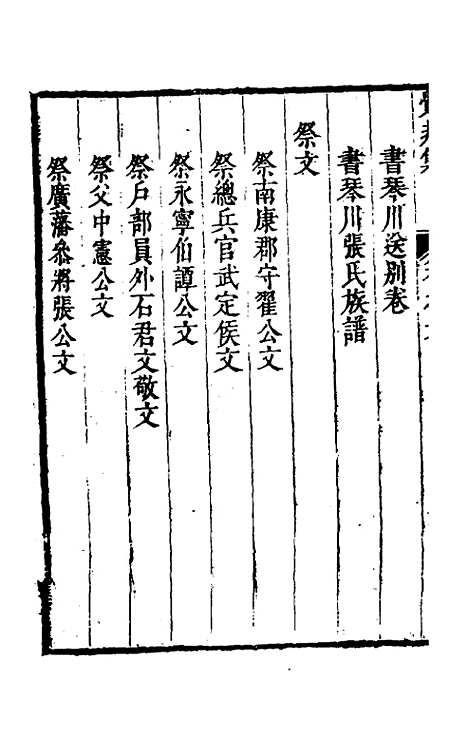 書琴川送別卷
書琴川張氏族譜
祭文
祭南康郡守翟公文
祭總兵官武定侯文
祭永寧伯譚公文
祭戶部員外石君文敬文
祭父中憲公文
祭廣藩參將張公文